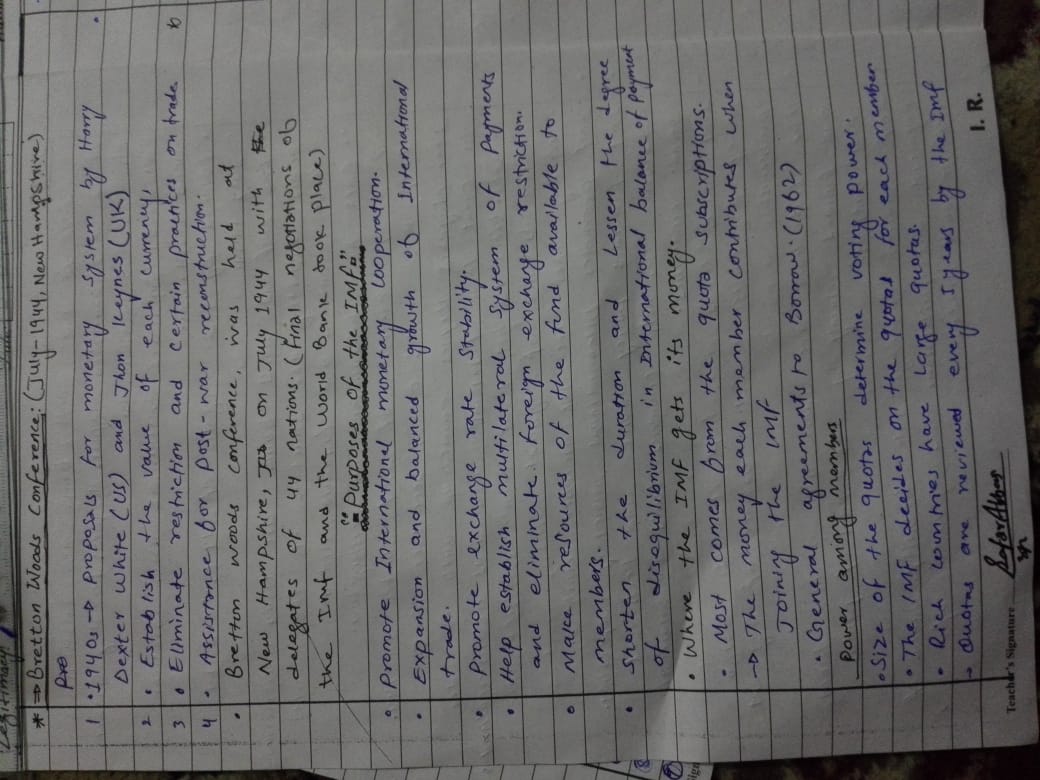 * ⇒ Bretton Woods Conference: (July-1944, New Hampshire)
Pro
1 • 1940s → proposals for monetary system by Harry
Dexter White (US) and Jhon Keynes (UK)
2 • Establish the value of each currency,
3 • Eliminate restriction and certain practices on trade
4 • Assistance for post-war reconstruction.
• Bretton woods conference, was held at
New Hampshire, on July 1944 with
delegates of 44 nations. (final negotiations of
the Imf and the World Bank took place)
"Purposes of the IMF:"
• Promote International monetary cooperation.
• Expansion and balanced growth of International
trade.
• Promote exchange rate Stability.
• Help establish multilateral System of Payments
and eliminate foreign exchange restriction.
• Make resources of the fund available to
members.
• shorten the duration and lessen the degree
of disequilibrium in International balance of payment
• Where the IMF gets its money.
• Most comes from the quota subscriptions.
→ The money each member contributes when
Joining the IMF
• General agreements to Borrow. (1962)
Power among members
• Size of the quotas determine voting power.
• The IMF decides on the quotas for each member
• Rich countries have large quotas.
→ Quotas are reviewed every 5 years by the Imf
Teacher's Signature
I. R.